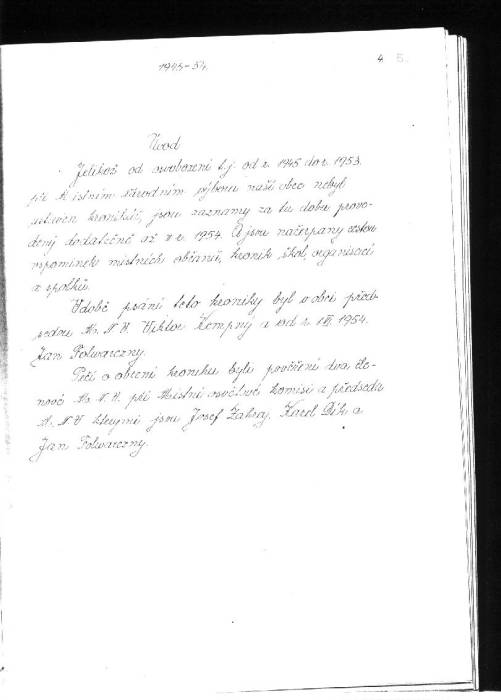 1945-54.
4 5.
Úvod
Jelikož od osvobození t.j. od r. 1945 do r. 1953
při Místním národním výboru naší obce nebyl
ustaven kronikář, jsou záznamy za tu dobu prove-
dený dodatečně až v r. 1954. A jsou načerpány cestou
vzpomínek místních občanů, kronik škol, organisací
a spolků.
V době psání této kroniky byl v obci před-
sedou M. N. V. Viktor Kempný a od r. 1954.
Jan Folwarczny.
Péčí o obecní kroniku byli pověřeni dva čle-
nové M. N. V. při Místní osvětové komisi a předseda
M. N. V. kterými jsou Josef Karel a
Jan Folwarczny.